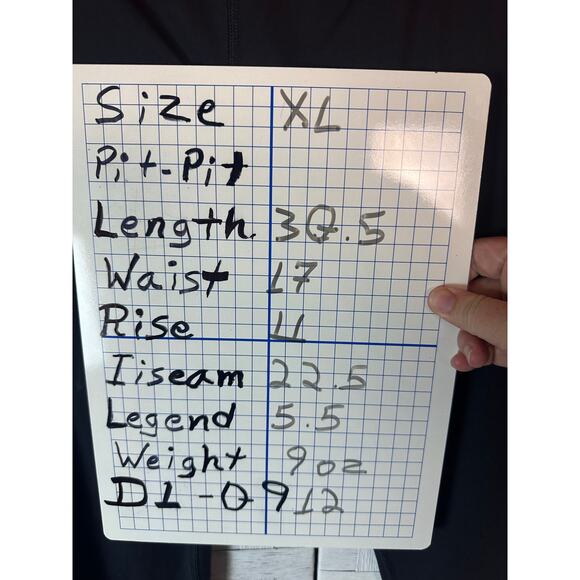 Size XL
Pit-Pit
Length 30.5
Waist 17
Rise 11
Iiseam 22.5
Legend 5.5
Weight 9oz
D1-0912